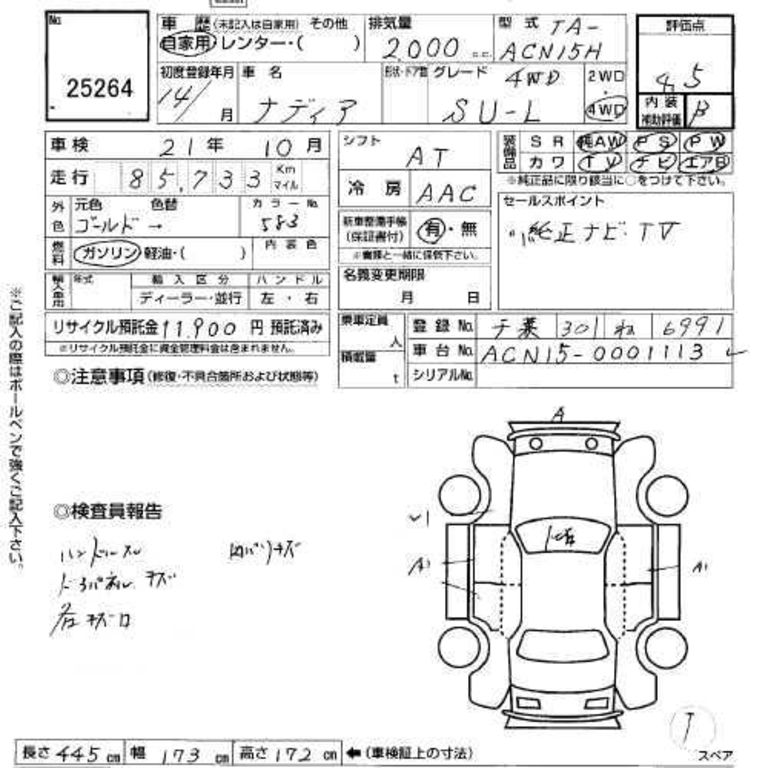 No. 25264
車歴 (未記入は自家用) その他
自家用・レンター・( )
排気量 2,000 c.c.
型式 TA-ACN15H
評価点 4.5
初度登録年月 14/ 月
車名 ナディア
形状・ドア数 グレード 4WD SU-L
2WD 4WD
内装補助評価 B
車検 21年 10月
シフト AT
装備品 SR 純AW PS PW
カワ TV ナビ エアB
※純正品に限り該当に○をつけて下さい。
走行 85,733 Km マイル
冷房 AAC
外色 元色 色替 カラーNo.
ゴールド → 583
セールスポイント
純正ナビ・TV
新車整備手帳(保証書付) 有・無
※車検と一緒に保管下さい。
燃料 ガソリン・軽油・( ) 内装色
名義変更期限 月 日
輸入車用 年式 輸入区分 ハンドル
ディーラー・並行 左・右
リサイクル預託金 11,900 円 預託済み
※リサイクル預託金に資金管理料金は含まれません。
乗車定員 人
登録No. 千葉 301 ね 6991
積載量 t
車台No. ACN15-0001113
シリアルNo.
◎注意事項(修復・不具合箇所および状態等)
※ご記入の際はボールペンで強くご記入下さい。
A
◎検査員報告
ハンドルスレ
内バリキズ
ドアパネル キズ
各キズ凹
A1
A1
スペア
長さ 445 cm 幅 173 cm 高さ 172 cm ←(車検証上の寸法)